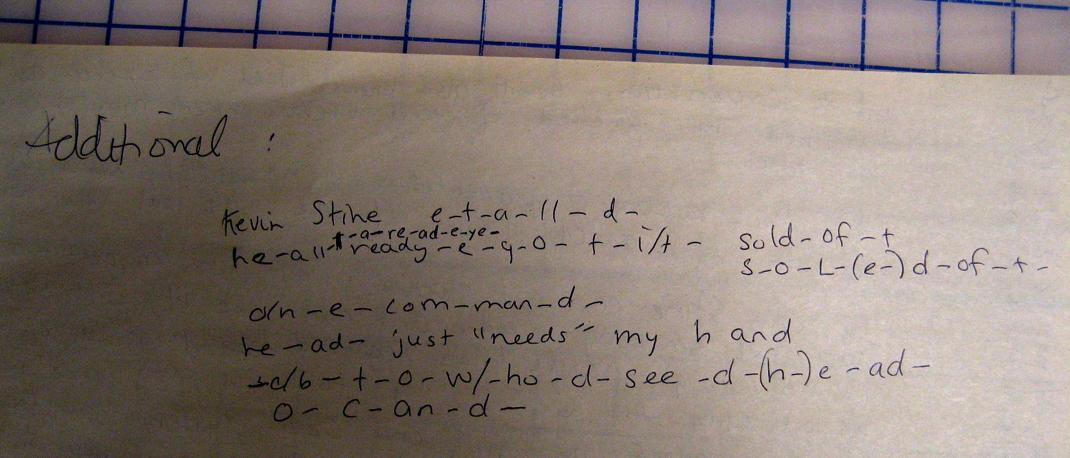 Additional :
Kevin Stine e-t-a-ll-d-
t-a-re-ad-e-ye-
he-all-ready-e-q-o-t-i/t- sold-of-t
s-o-L-(e-)d-of-t-
o/n-e-com-man-d-
he-ad- just "needs" my hand
d/b-t-o-w/-ho-d-see-d-(h-)e-ad-
o-c-an-d-